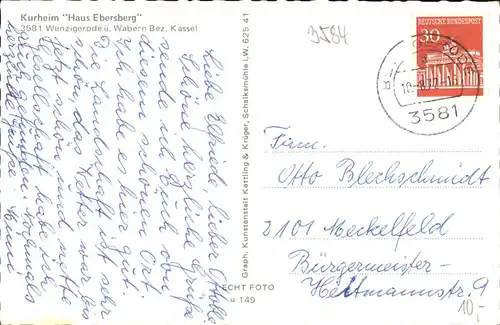 Kurheim "Haus Ebersberg"
3581 Wenzigerode ü. Wabern Bez. Kassel
3584
Graph. Kunstanstalt Kettling & Krüger, Schalksmühle i.W. 625 41
ECHT FOTO
149
DEUTSCHE BUNDESPOST
30
3581
Liebe Elfriede, lieber Otto!
Schöne herzliche Grüße
sende ich Euch von
diesem schönen Ort.
Ich habe es hier gut.
Die Landschaft ist
schön das Wetter war bis
jetzt schön und nette
Gesellschaft habe ich
Fam.
Otto Blechschmidt
2101 Meckelfeld
Bürgermeister-
Heitmannstr. 9
10,-